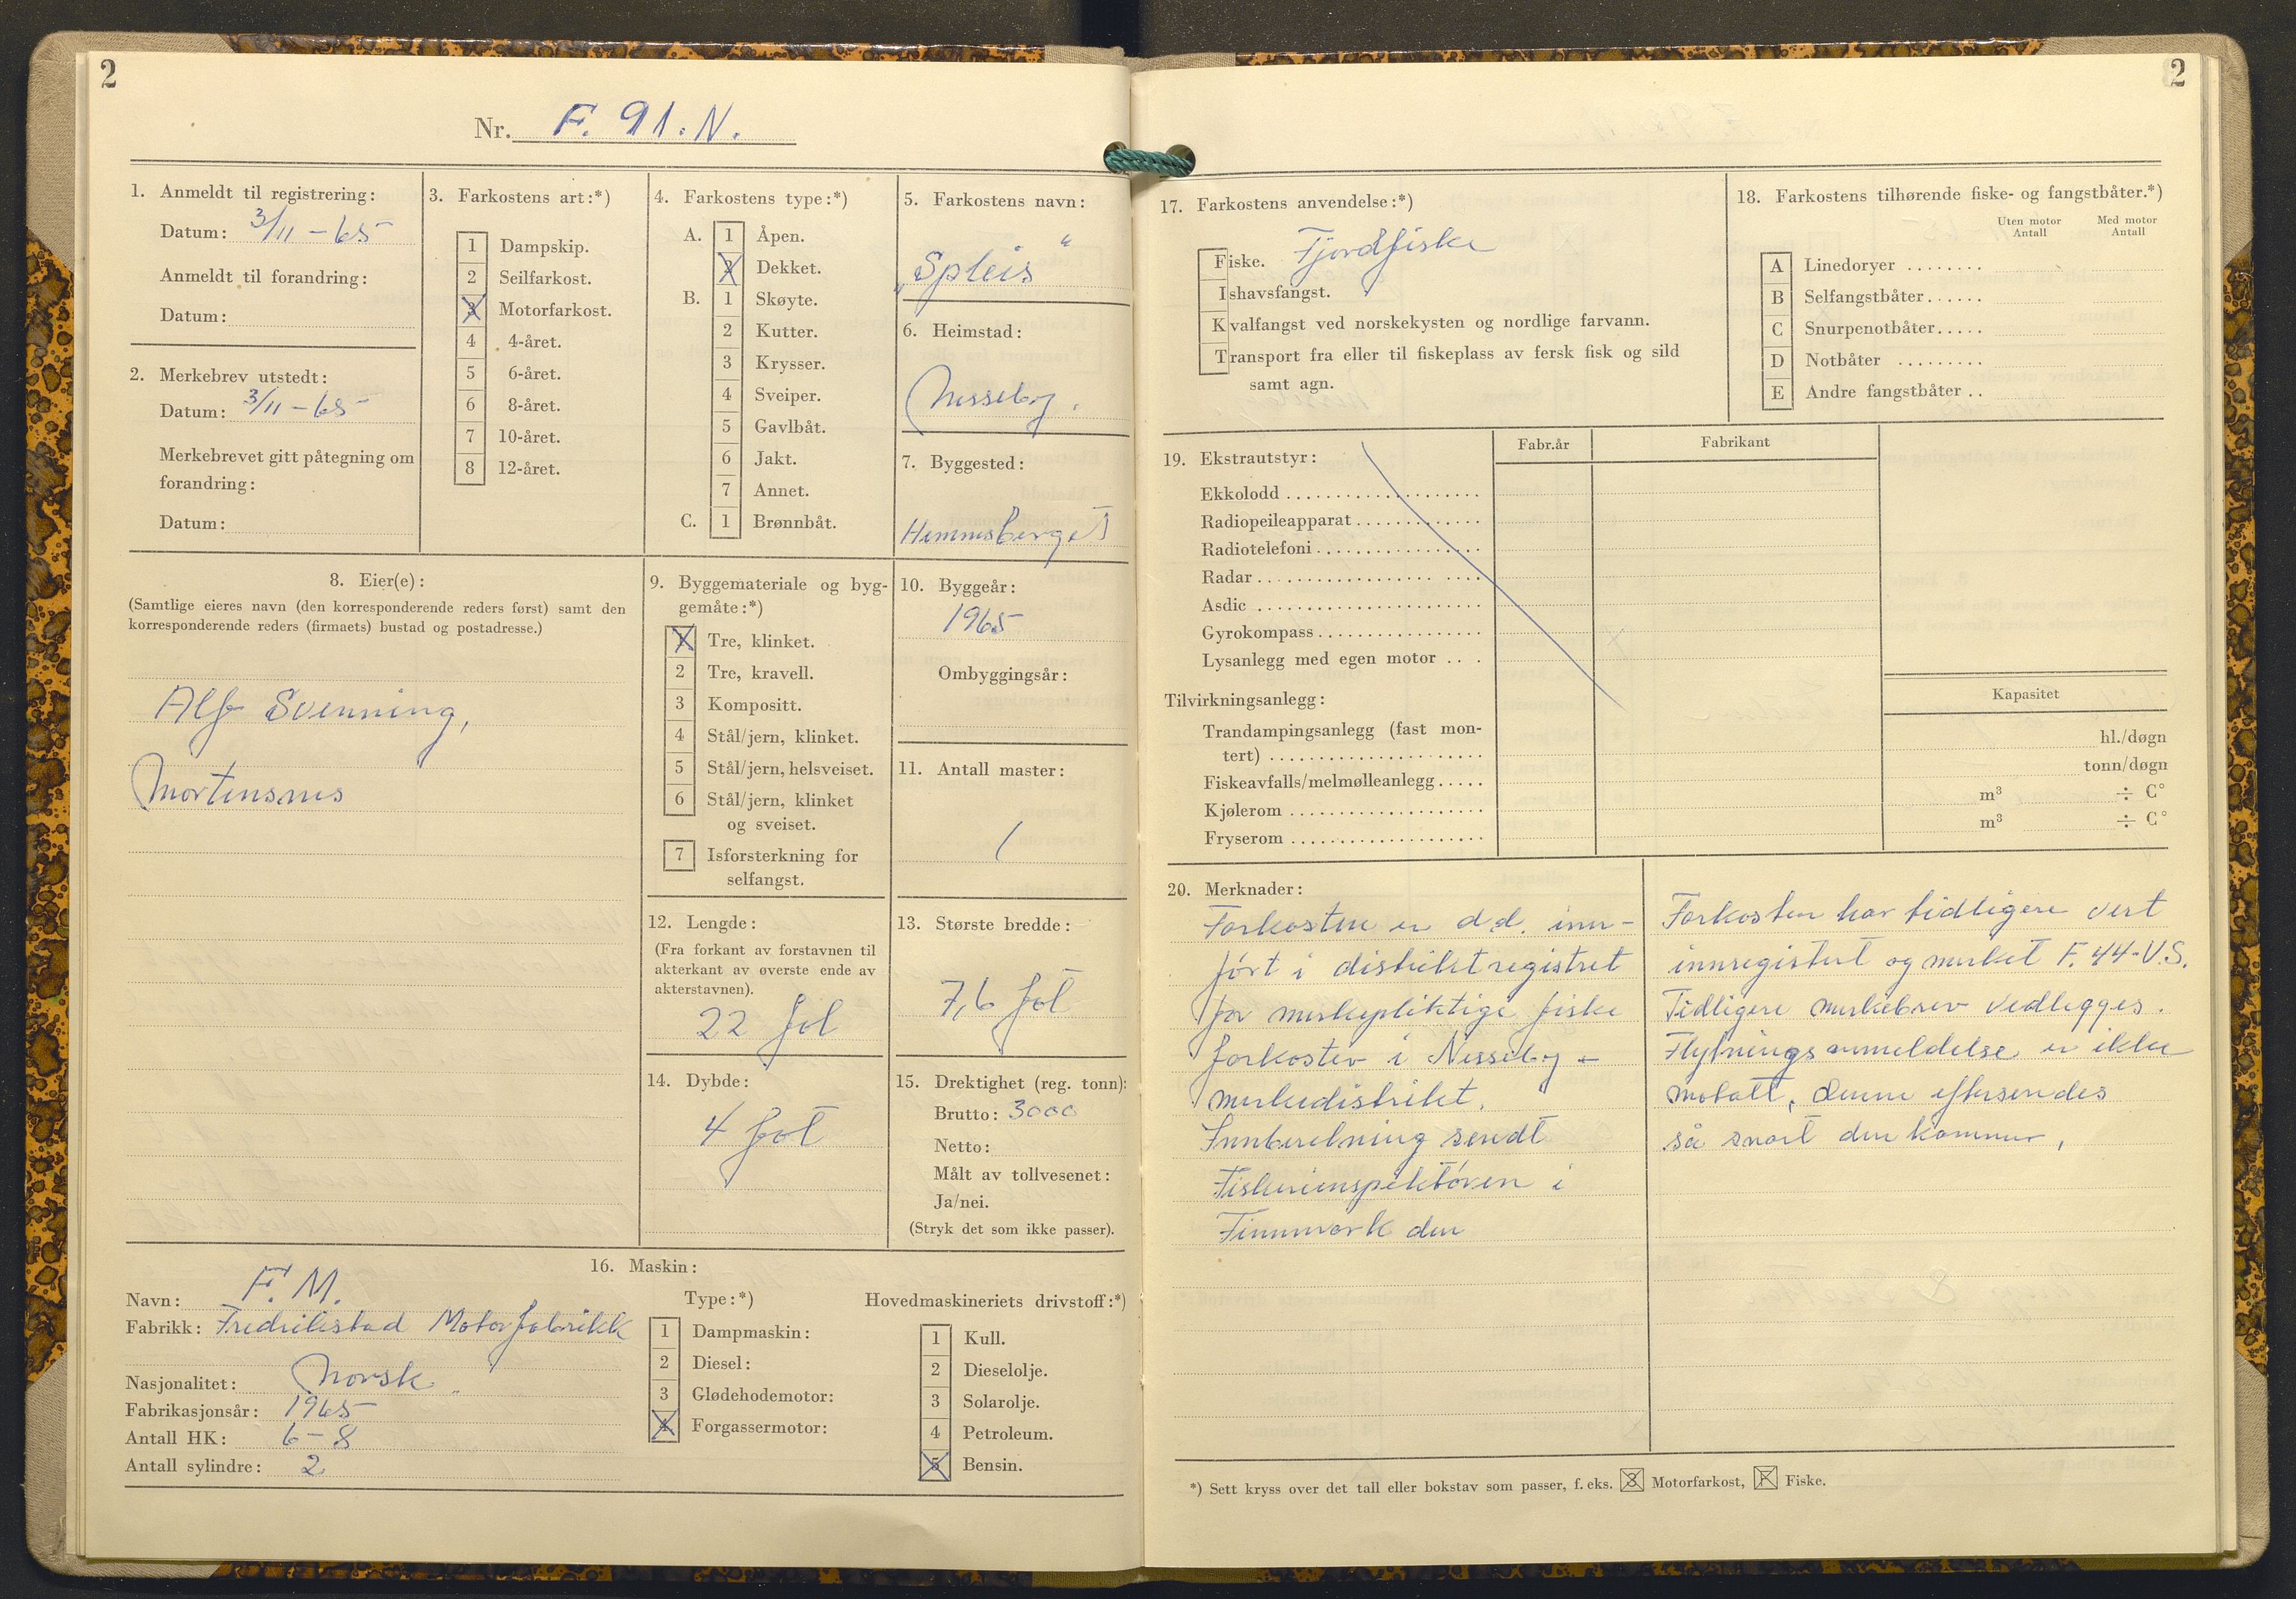 2
Nr. F. 91. N.
1. Anmeldt til registrering:
Datum: 3/11 - 65
Anmeldt til forandring:
Datum:
2. Merkebrev utstedt:
Datum: 3/11 - 65
Merkebrevet gitt påtegning om
forandring:
Datum:
3. Farkostens art:*)
1 Dampskip.
2 Seilfarkost.
3 Motorfarkost.
4 4-året.
5 6-året.
6 8-året.
7 10-året.
8 12-året.
4. Farkostens type:*)
A. 1 Åpen.
2 Dekket.
B. 1 Skøyte.
2 Kutter.
3 Krysser.
4 Sveiper.
5 Gavlbåt.
6 Jakt.
7 Annet.
C. 1 Brønnbåt.
5. Farkostens navn:
„Spleis“
6. Heimstad:
Nesseby.
7. Byggested:
Hemnesberget
8. Eier(e):
(Samtlige eieres navn (den korresponderende reders først) samt den
korresponderende reders (firmaets) bustad og postadresse.)
Alf Svenning,
Mortensnes
9. Byggemateriale og byg-
gemåte:*)
1 Tre, klinket.
2 Tre, kravell.
3 Kompositt.
4 Stål/jern, klinket.
5 Stål/jern, helsveiset.
6 Stål/jern, klinket
og sveiset.
7 Isforsterkning for
selfangst.
10. Byggeår:
1965
Ombyggingsår:
11. Antall master:
1
12. Lengde:
(Fra forkant av forstavnen til
akterkant av øverste ende av
akterstavnen).
22 fot
13. Største bredde:
7,6 fot
14. Dybde:
4 fot
15. Drektighet (reg. tonn):
Brutto: 3000
Netto:
Målt av tollvesenet:
Ja/nei.
(Stryk det som ikke passer).
16. Maskin:
Navn: F. M.
Fabrikk: Fredrikstad Motorfabrikk
Nasjonalitet: Norsk
Fabrikasjonsår: 1965
Antall HK: 6-8
Antall sylindre: 2
Type:*)
1 Dampmaskin:
2 Diesel:
3 Glødehodemotor:
4 Forgassermotor:
Hovedmaskineriets drivstoff:*)
1 Kull.
2 Dieselolje.
3 Solarolje.
4 Petroleum.
5 Bensin.
2
17. Farkostens anvendelse:*)
Fiske. Fjordfiske
Ishavsfangst.
Kvalfangst ved norskekysten og nordlige farvann.
Transport fra eller til fiskeplass av fersk fisk og sild
samt agn.
18. Farkostens tilhørende fiske- og fangstbåter.*)
Uten motor Med motor
Antall Antall
A Linedoryer ........
B Selfangstbåter......
C Snurpenotbåter.....
D Notbåter .........
E Andre fangstbåter ..
19. Ekstrautstyr:
Fabr.år Fabrikant
Ekkolodd
Radiopeileapparat
Radiotelefoni
Radar
Asdic
Gyrokompass
Lysanlegg med egen motor
Tilvirkningsanlegg:
Kapasitet
Trandampingsanlegg (fast mon-
tert) hl./døgn
Fiskeavfalls/melmølleanlegg..... tonn/døgn
Kjølerom m³ ÷ C°
Fryserom m³ ÷ C°
20. Merknader:
Farkosten er d.d. inn-
ført i distriktregistret
for merkepliktige fiske
farkoster i Nesseby -
merkedistrikt.
Innberetning sendt
Fiskeriinspektøren i
Finnmark den
Farkosten har tidligere vert
innregistert og merket F. 44-V.S.
Tidligere merkebrev vedlegges.
Flytningsanmeldelse er ikke
motatt, denne eftersendes
så snart den kommer,
*) Sett kryss over det tall eller bokstav som passer, f. eks. 3 Motorfarkost, F Fiske.